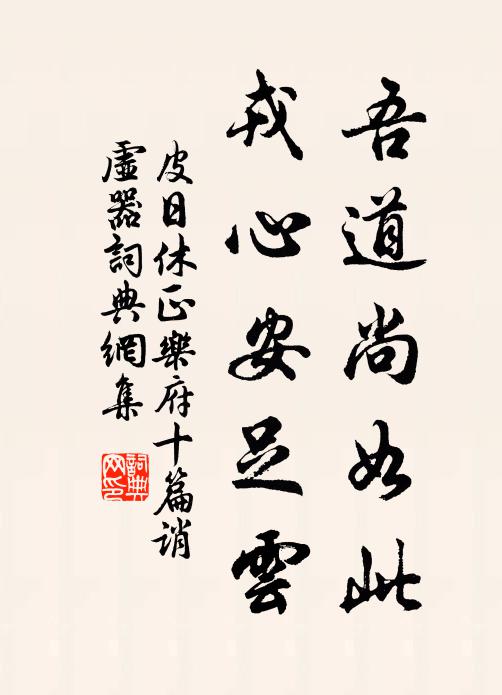 吾道尚如此
戎心安足雲
皮日休正樂府十篇誚
虛器詞典網集
詞典網印